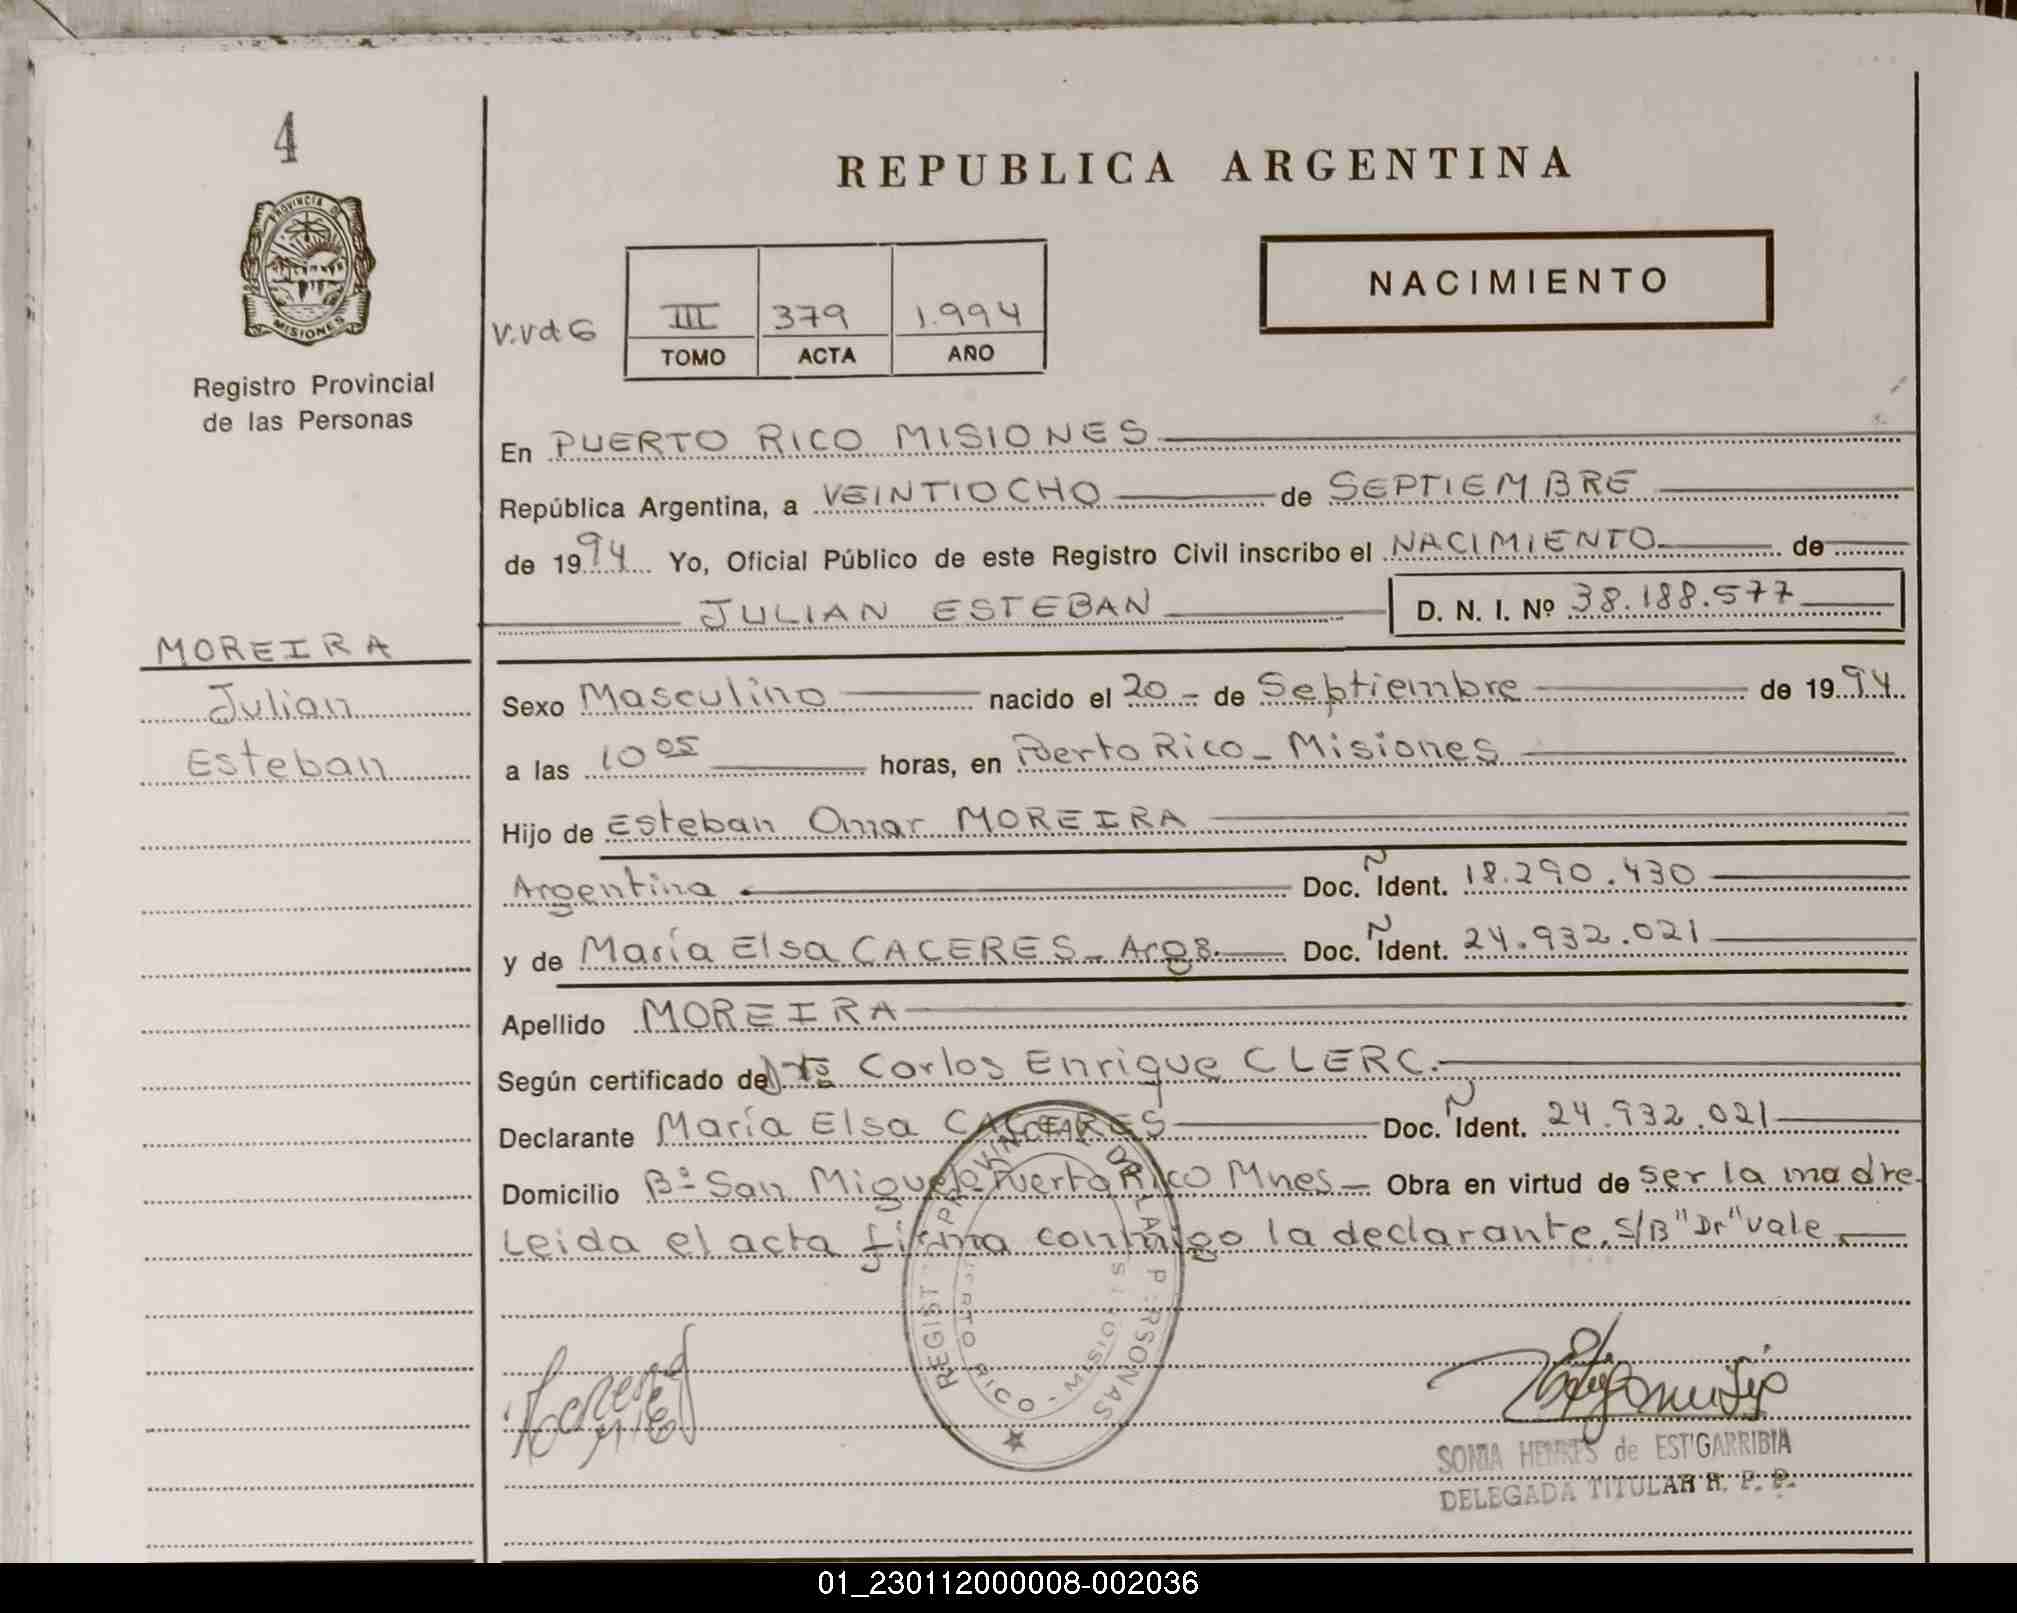 4
REPUBLICA ARGENTINA
PROVINCIA DE
MISIONES
NACIMIENTO
V.VdG
III 379 1.994
TOMO ACTA AÑO
Registro Provincial
de las Personas
En PUERTO RICO MISIONES
República Argentina, a VEINTIOCHO de SEPTIEMBRE
de 1994 Yo, Oficial Público de este Registro Civil inscribo el NACIMIENTO de
JULIAN ESTEBAN D. N. I. Nº 38.188.577
MOREIRA
Julian
Esteban
Sexo Masculino nacido el 20 - de Septiembre de 1994
a las 10 05 horas, en Puerto Rico - Misiones
Hijo de Esteban Omar MOREIRA
Argentina Doc. Ident. 18.290.430
y de María Elsa CACERES - Args. Doc. Ident. 24.932.021
Apellido MOREIRA
Según certificado de Carlos Enrique CLERC.
Declarante María Elsa CACERES Doc. Ident. 24.932.021
Domicilio Bº San Miguel - Puerto Rico Mnes - Obra en virtud de ser la madre
Leida el acta firma conmigo la declarante. S/B "Dr" vale
REGIST PROVINCIAL DE LAS PERSONAS
PUERTO RICO - MISIONES
SONIA HENRES de ESTIGARRIBIA
DELEGADA TITULAR R. P. P.
01_230112000008-002036